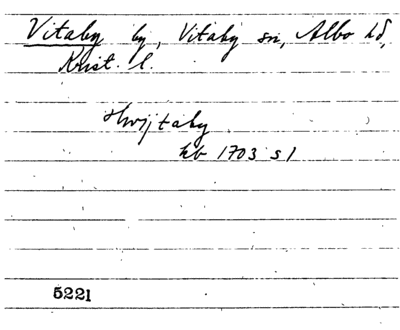 Vitaby by, Vitaby sn, Albo hd,
Krist. l.
Hwijtaby
kb 1703 s 1
5221